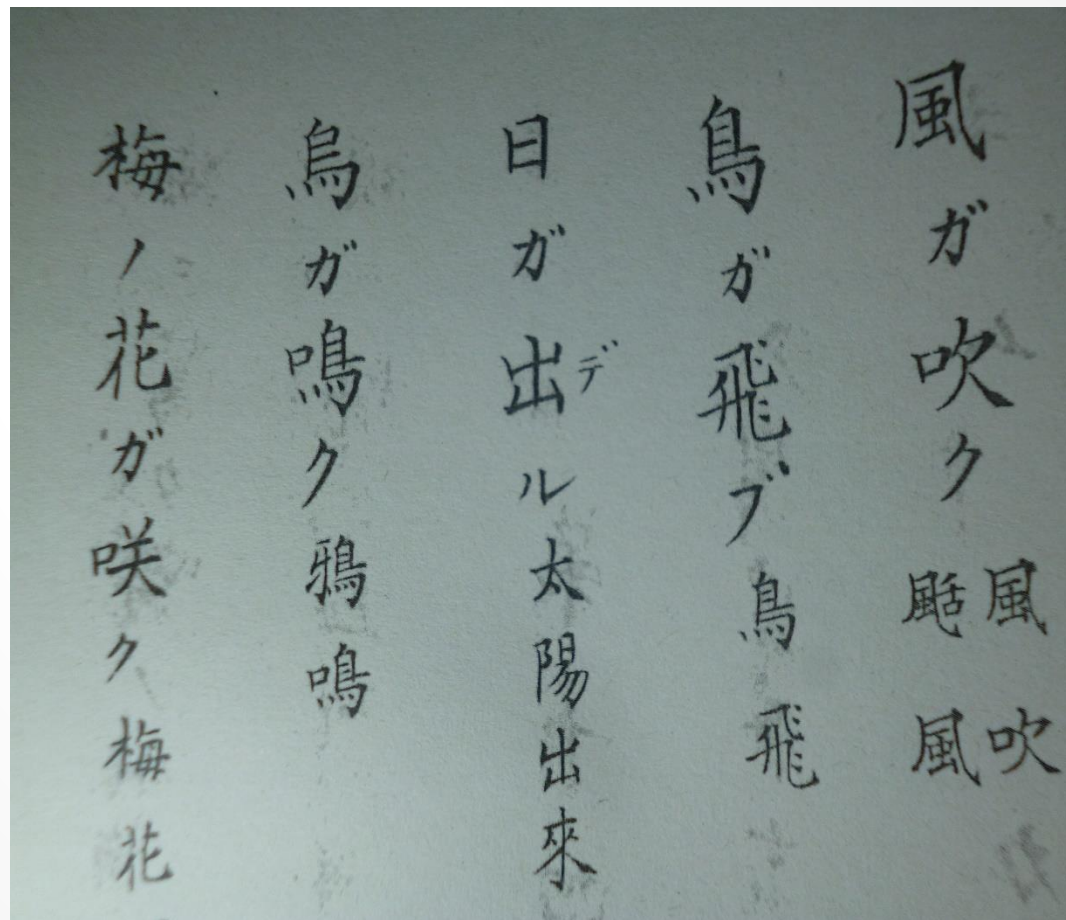 風ガ吹ク 風吹 颳風
鳥ガ飛ブ 鳥飛
日ガ出デル 太陽出來
烏ガ鳴ク 鴉鳴
梅ノ花ガ咲ク 梅花